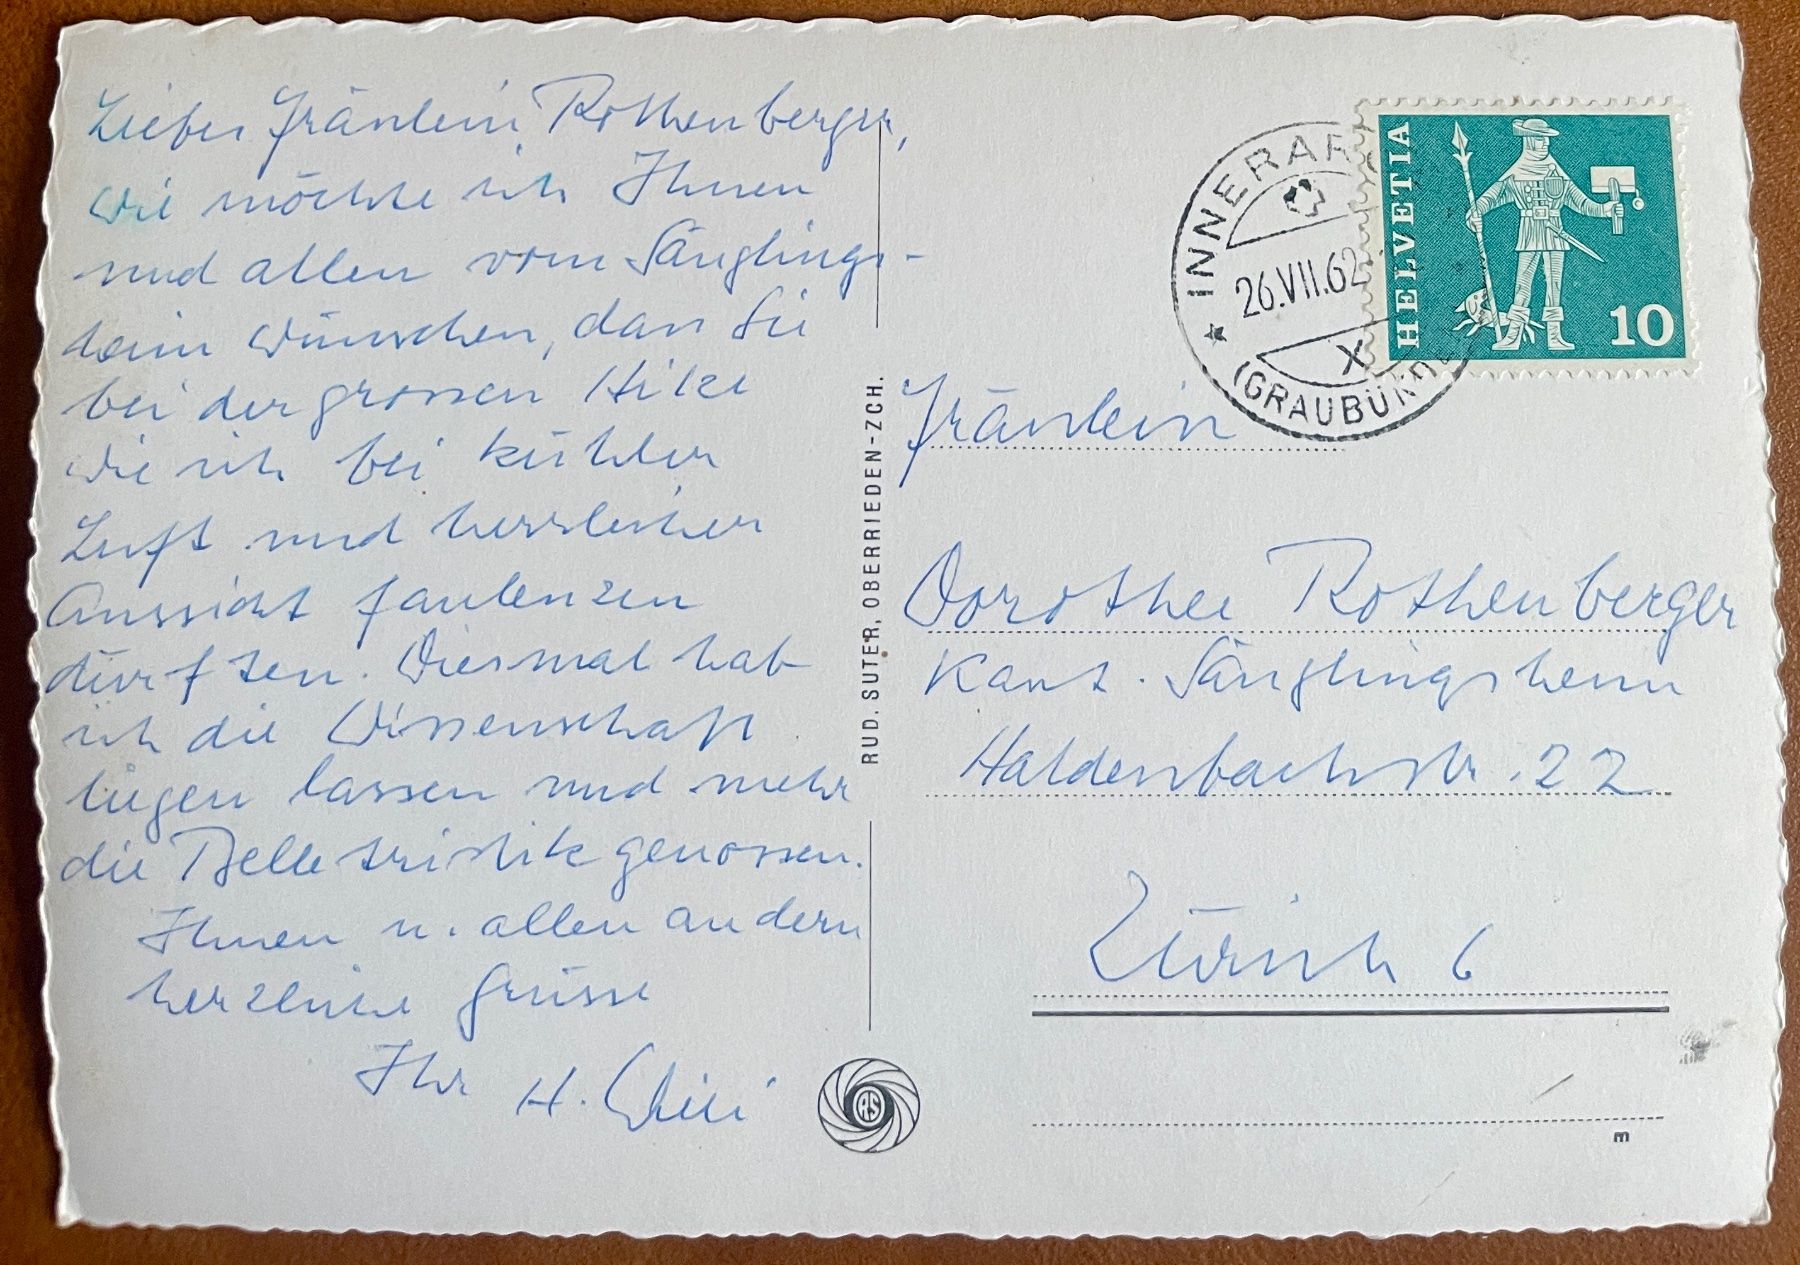 Liebes Fräulein Rothenberger,
wie möchte ich Ihnen
und allen vom Säuglings-
heim wünschen, dass Sie
bei der grossen Hitze
wie ich bei kühler
Luft und herrlicher
Aussicht faulenzen
dürften. Diesmal hab
ich die Wissenschaft
liegen lassen und mehr
die Belletristik genossen.
Ihnen u. allen andern
herzliche Grüsse
Ihr H.
RUD. SUTER, OBERRIEDEN-ZCH.
RS
INNERAR
26.VII.62
X
(GRAUBÜND
HELVETIA
10
Fräulein
Dorothee Rothenberger
Kant. Säuglingsheim
Haldenbachstr. 22
Zürich 6
E